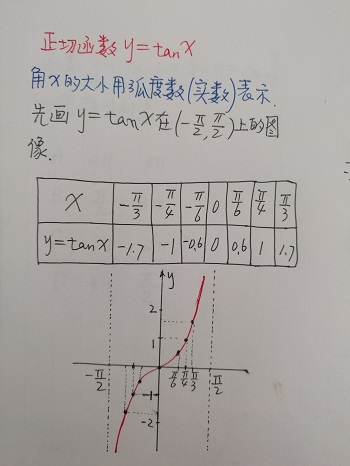 正切函数 y=tanx
角x的大小用弧度数(实数)表示.
先画y=tanx在(-π/2,π/2)上的图
像.
x -π/3 -π/4 -π/6 0 π/6 π/4 π/3
y=tanx -1.7 -1 -0.6 0 0.6 1 1.7
y
2
1
-π/2 π/6 π/4 π/3 π/2
-1
-2